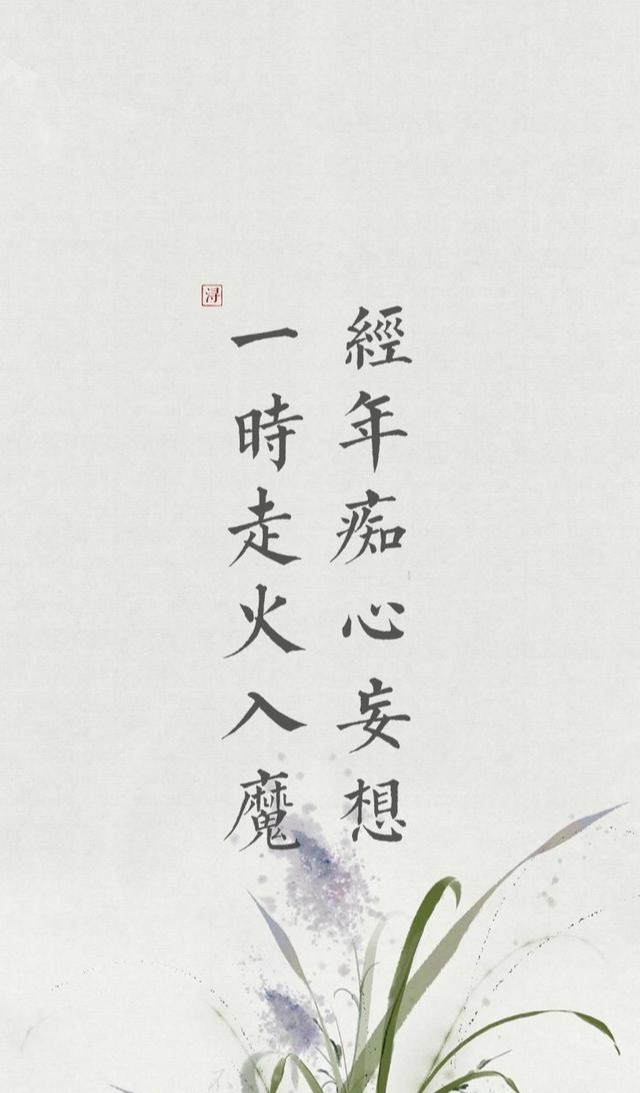 經年痴心妄想
一時走火入魔
浔